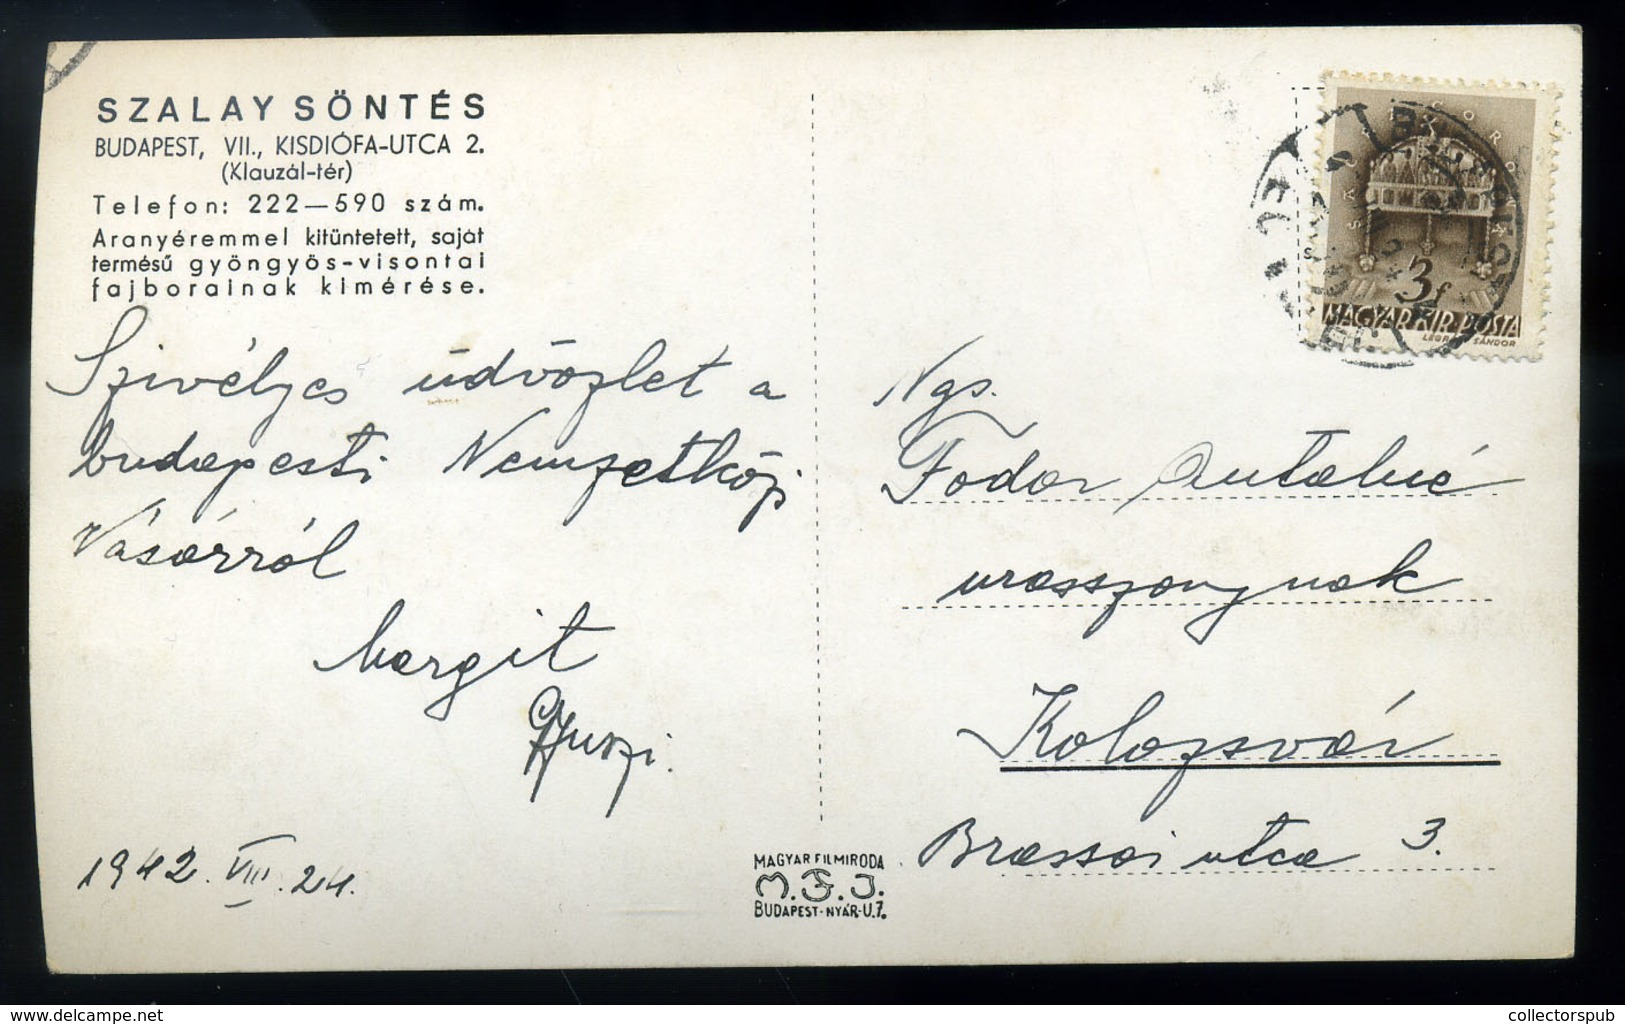 SZALAY SÖNTÉS
BUDAPEST, VII., KISDIÓFA-UTCA 2.
(Klauzál-tér)
Telefon: 222—590 szám.
Aranyéremmel kitüntetett, saját
termésű gyöngyös-visontai
fajborainak kimérése.
Szivélyes üdvözlet a
budapesti Nemzetközi
Vásárról
Margit
1942. VIII. 24.
MAGYAR FILMIRODA
M.F.I.
BUDAPEST-NYÁR-U.7.
3f
MAGYAR KIR. POSTA
LEGRÁDY SÁNDOR
Ngs.
Fodor Antalné
urasszonynak
Kolozsvár
Brassai utca 3.
delcampe.net
collectorspub